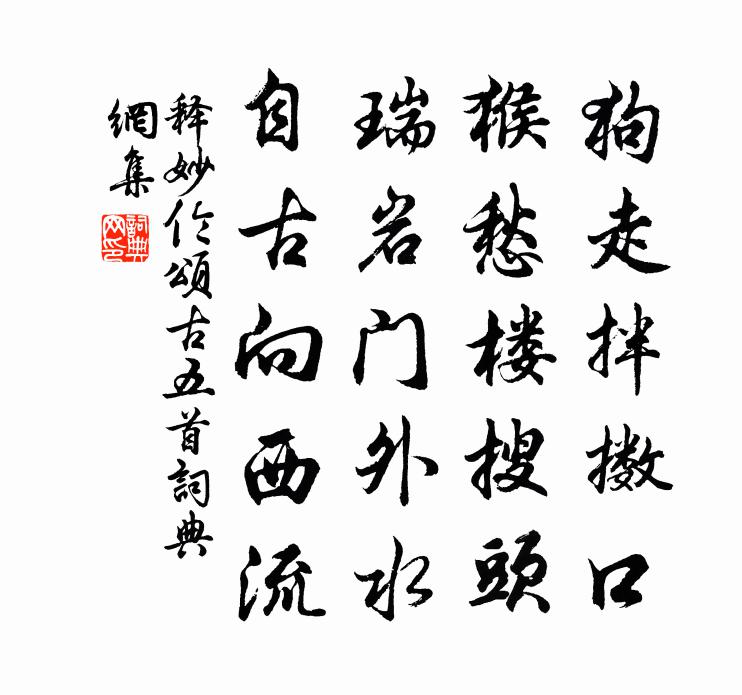 狗走抖擞口
猴愁楼搜頭
瑞岩门外水
自古向西流
释妙伦頌古五首詞典
網集
詞典網印